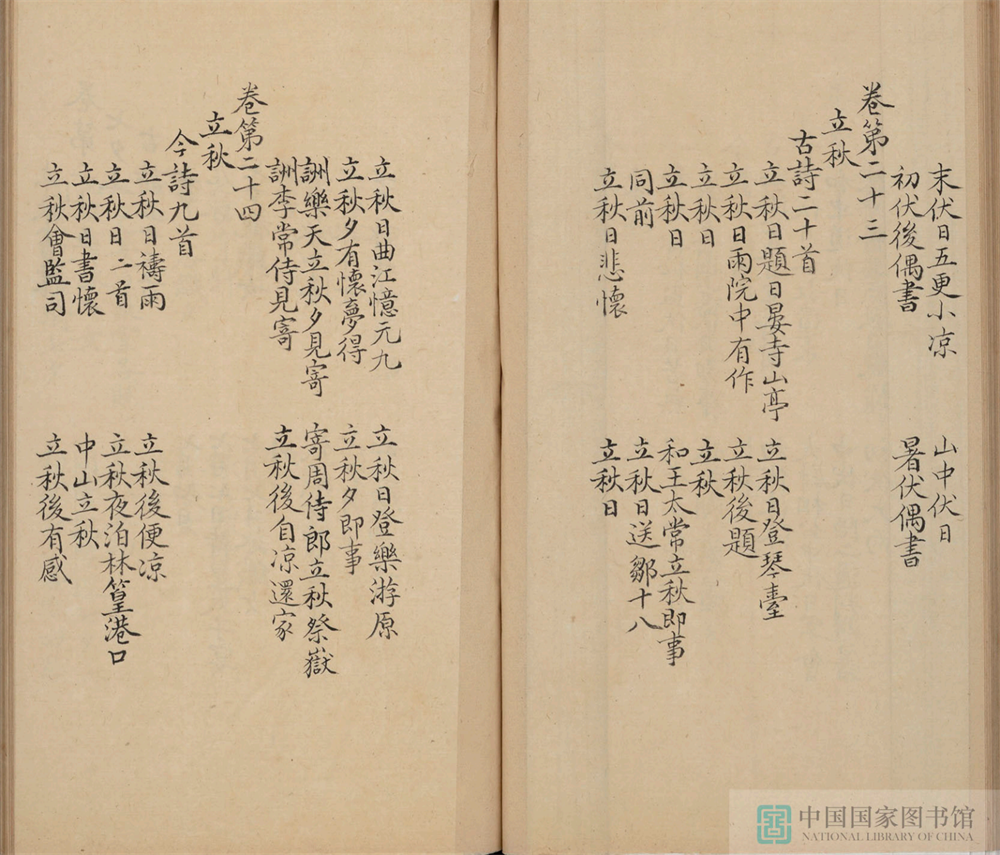 末伏日五更小凉　山中伏日
初伏後偶書　暑伏偶書
卷第二十三
立秋
古詩二十首
立秋日題日晏寺山亭　立秋日登琴臺
立秋日雨院中有作　立秋後題
立秋日　立秋
立秋日　和王太常立秋即事
同前　立秋日送鄒十八
立秋日悲懷　立秋日
立秋日曲江憶元九　立秋日登樂游原
立秋夕有懷夢得　立秋夕即事
詶樂天立秋夕見寄　寄周侍郎立秋祭嶽
詶李常侍見寄　立秋後自凉還家
卷第二十四
立秋
今詩九首
立秋日禱雨　立秋後便凉
立秋日二首　立秋夜泊林篁港口
立秋日書懷　中山立秋
立秋會監司　立秋後有感
中国国家图书馆
NATIONAL LIBRARY OF CHINA